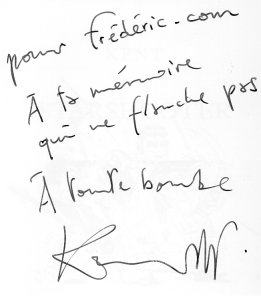 pour frédéric.com
À ta mémoire
qui ne flanche pas
À toute bombe